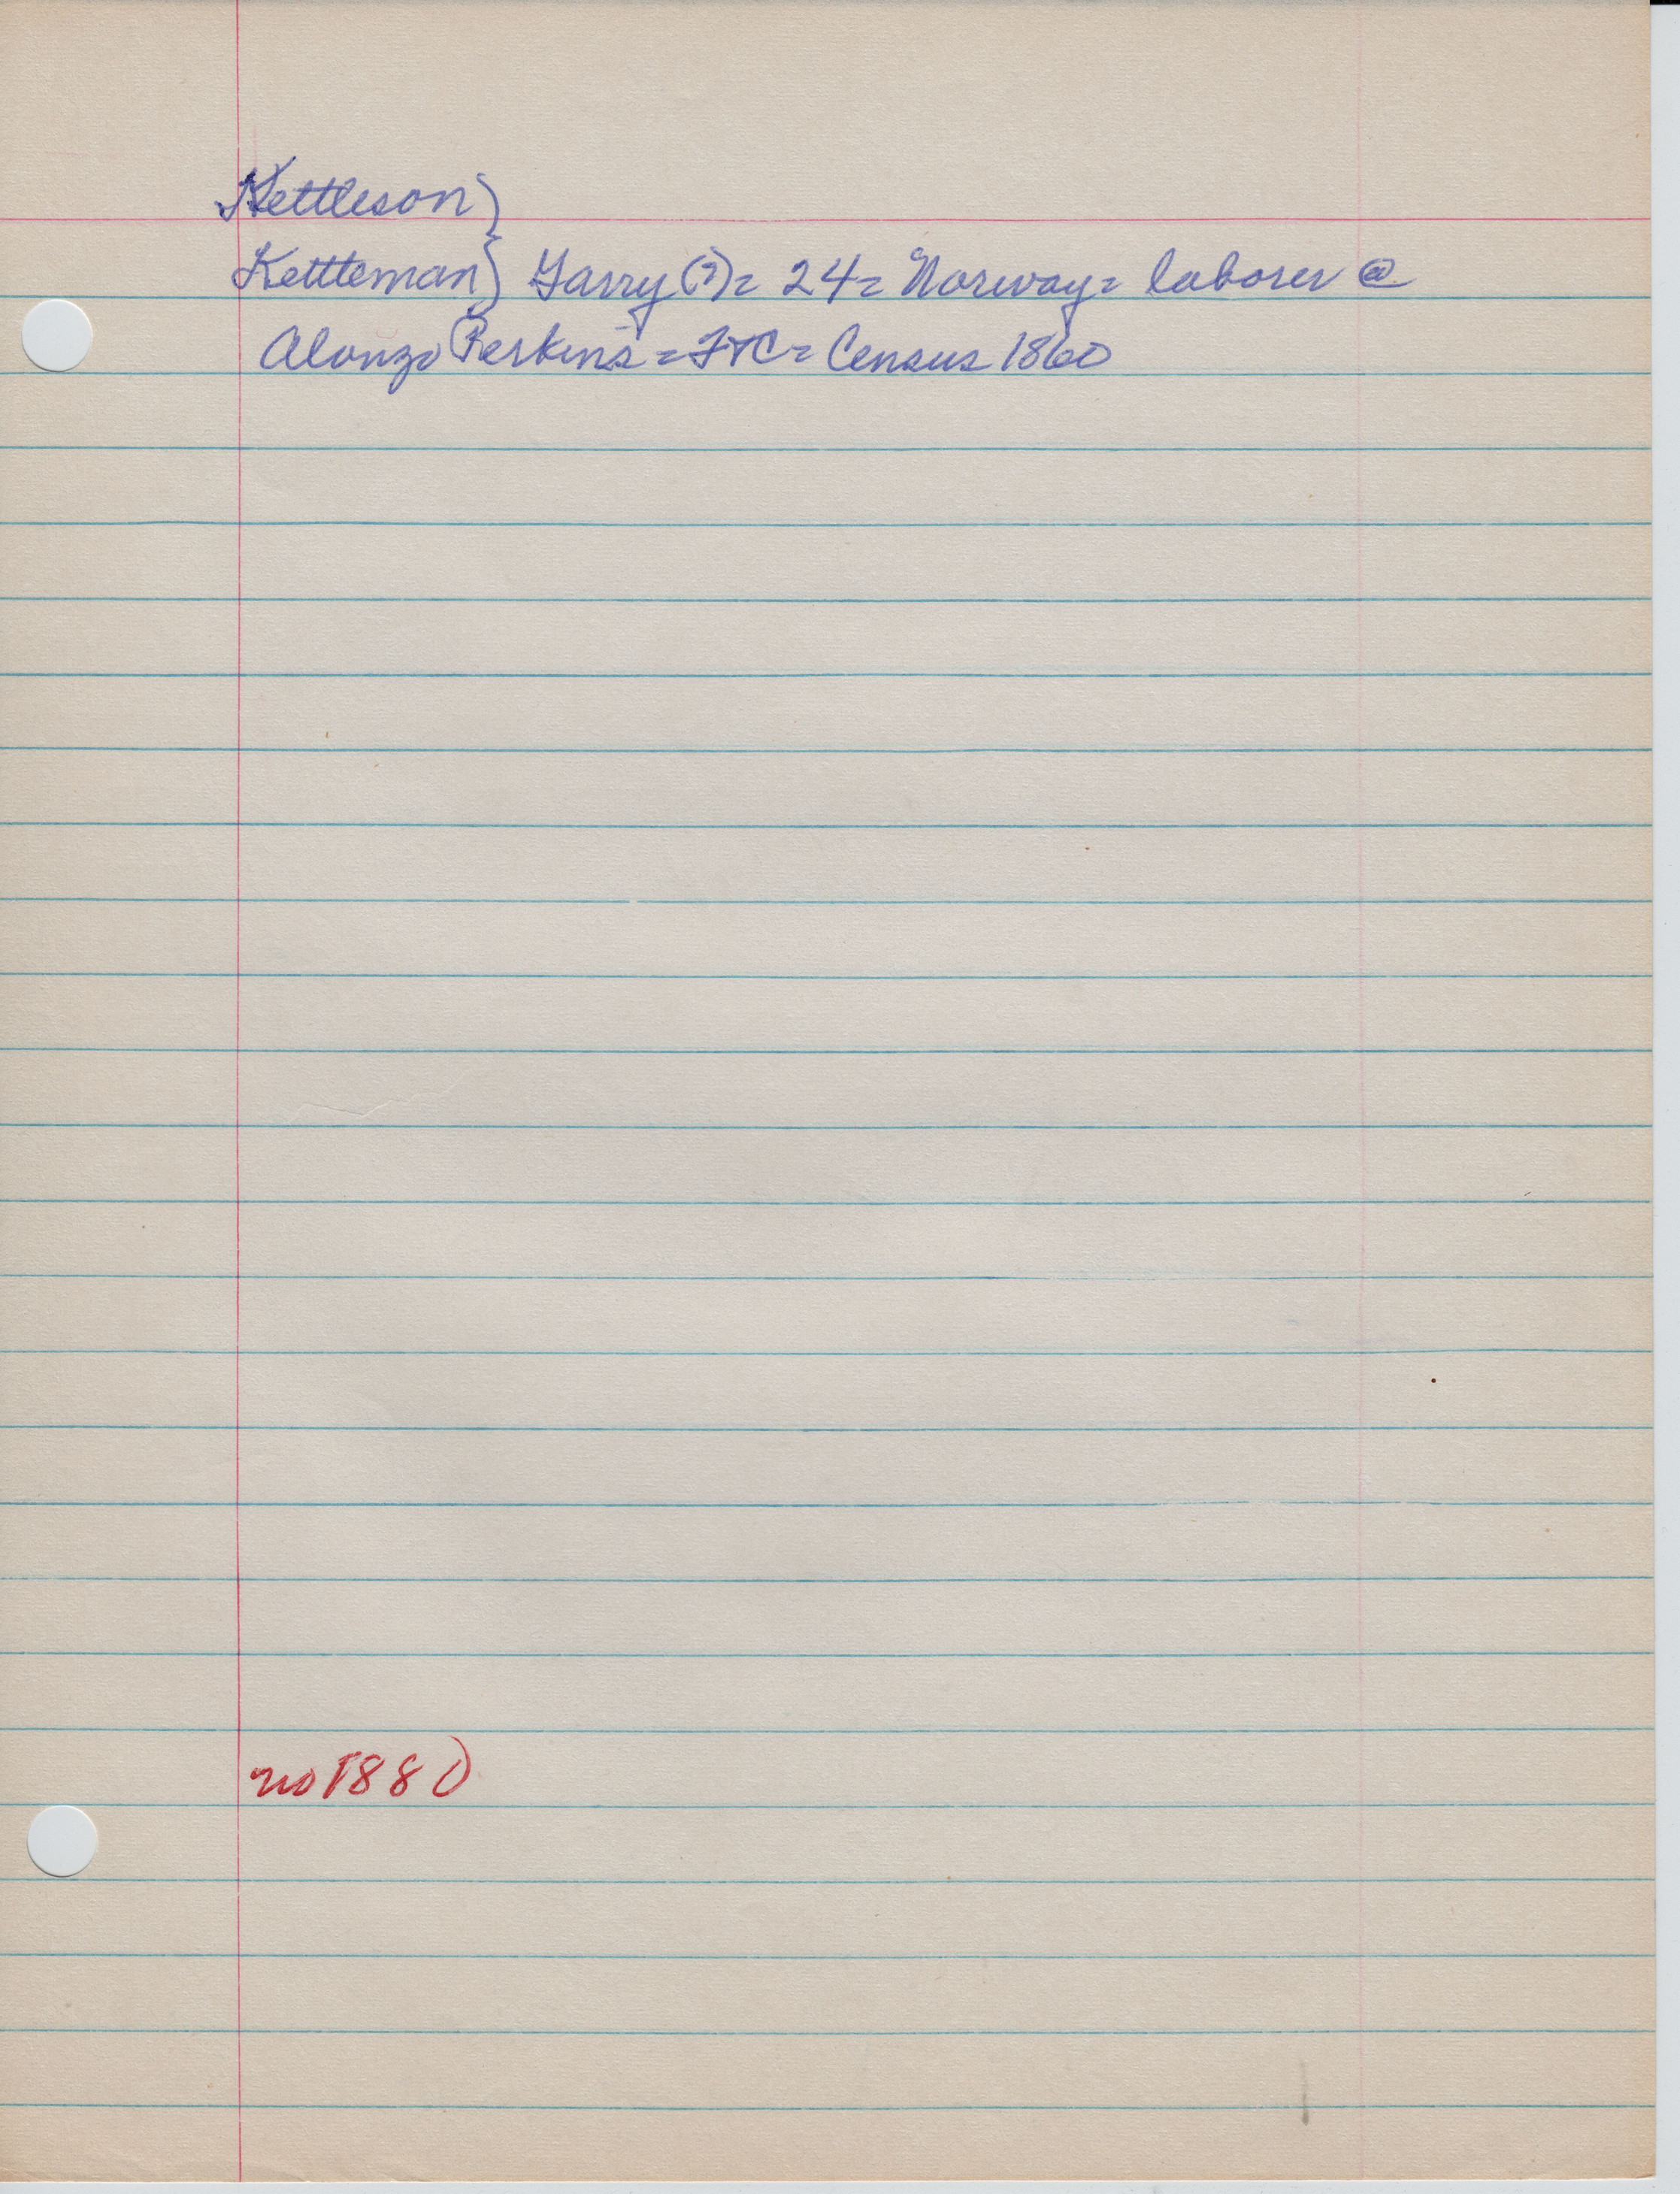 Kettleson}
Kettleman} Garry (?) = 24 = Norway = laborer @
Alonzo Perkins = F+C = Census 1860
no 1880